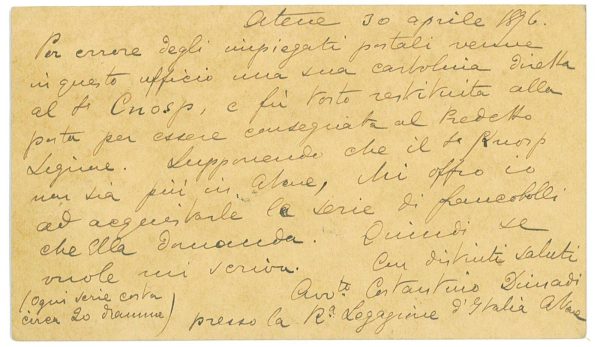 Atene 30 aprile 1896.
Per errore degli impiegati postali venne
in questo ufficio una sua cartolina diretta
al Sr Cnosp, e fù tosto restituita alla
posta per essere consegnata al predetto
Signore. Supponendo che il Sr Knosp
non sia più in Atene, mi offro io
ad acquistarle le serie di francobolli
che Ella domanda. Quindi se
vuole mi scriva. Con distinti saluti
(ogni serie costa
circa 20 dramme)
Avvto Costantino Dimadi
presso la Ra. Legazione d'Italia Atene